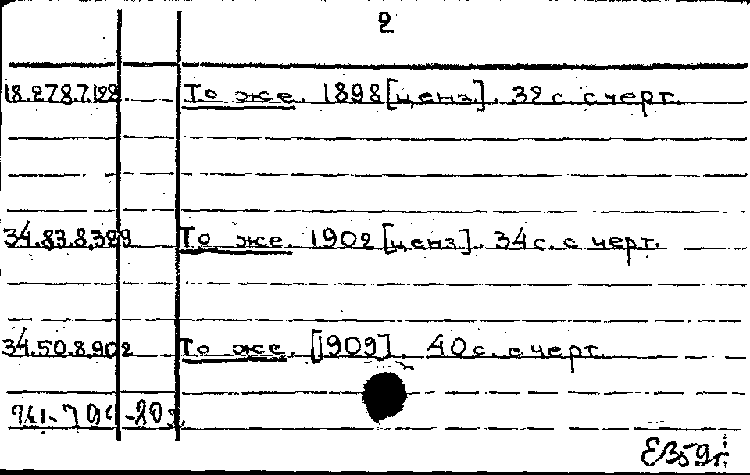 2
18.278.7.122 То же. 1898 [ценз.]. 32 с. с черт.
34.83.8.329 То же. 1902 [ценз.]. 34 с. с черт.
34.50.8.902 То же. [1909]. 40 с. с черт.